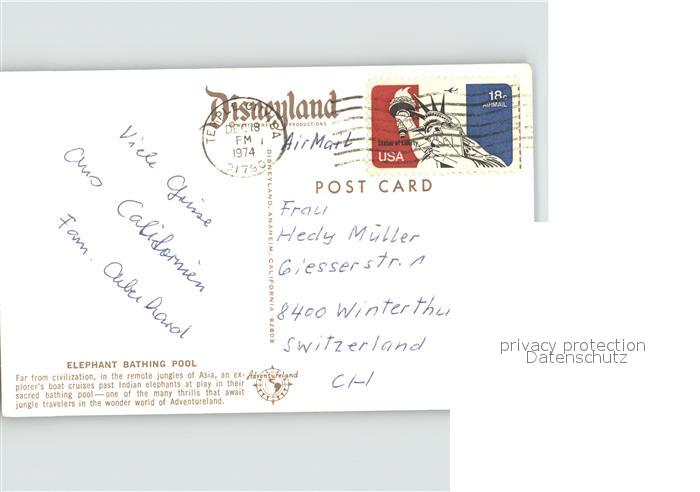 Disneyland
18c
AIRMAIL
Statue of Liberty
USA
DEC 18
PM
1974
91780
AirMail
POST CARD
Viele Grüsse
Aus Californien
Fam.
DISNEYLAND, ANAHEIM, CALIFORNIA 92803
Frau
Hedy Müller
Giesserstr. 1
8400 Winterthu
Switzerland
CH
ELEPHANT BATHING POOL
Far from civilization, in the remote jungles of Asia, an ex-
plorer's boat cruises past Indian elephants at play in their
sacred bathing pool—one of the many thrills that await
jungle travelers in the wonder world of Adventureland.
Adventureland
privacy protection
Datenschutz